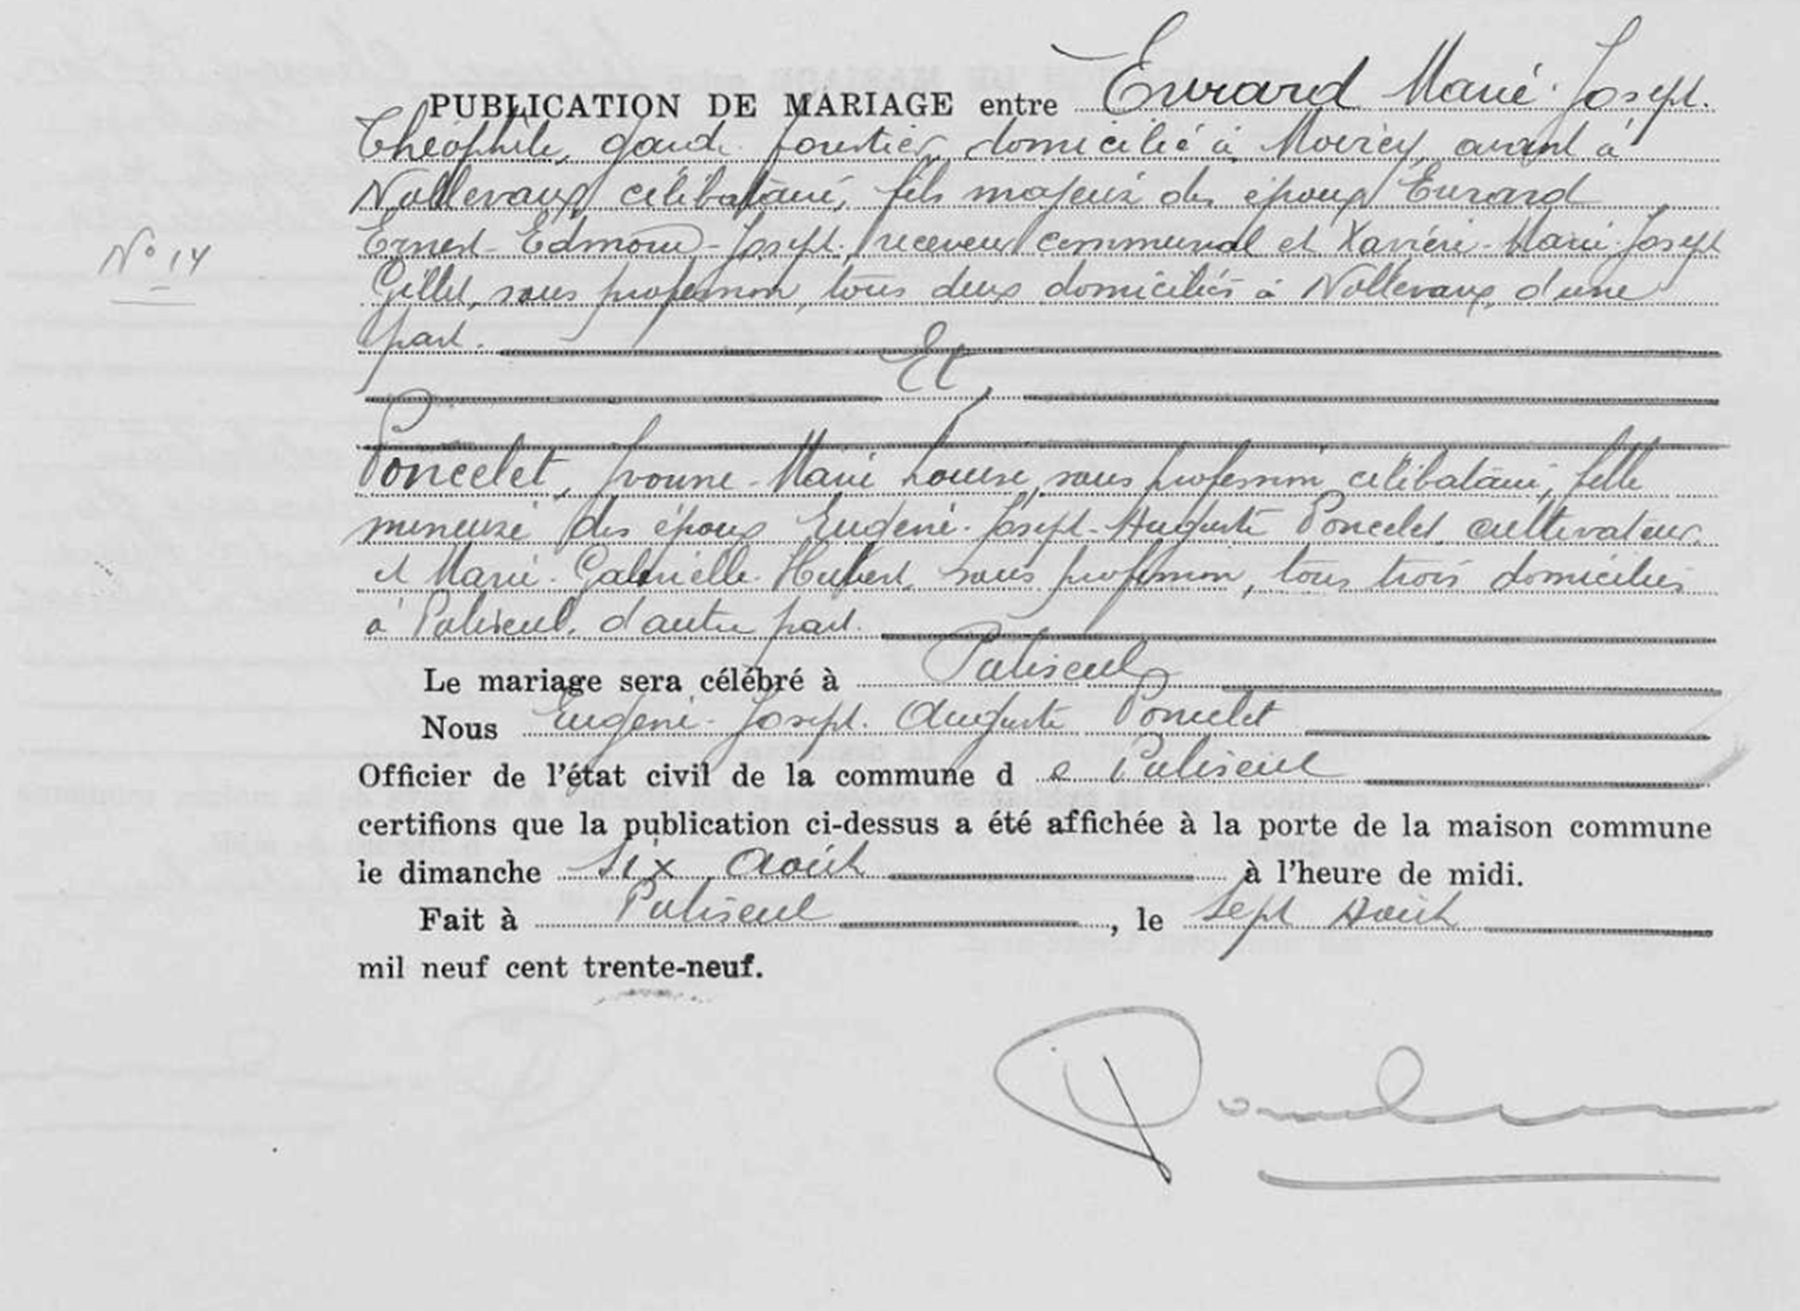 PUBLICATION DE MARIAGE entre Evrard Marie-Joseph.
Théophile, garde forestier, domicilié à Moircy, avant à
Nollevaux, célibataire, fils majeur des époux Evrard
Ernest-Edmond-Joseph, receveur communal et Xavière-Marie-Joseph
N° 14
Gillet, sans profession, tous deux domiciliés à Nollevaux, d'une
part.
Et,
Poncelet, Yvonne-Marie Louise, sans profession, célibataire, fille
mineure des époux Eugène-Joseph-Auguste Poncelet, cultivateur
et Marie-Gabrielle Hubert, sans profession, tous trois domiciliés
à Paliseul, d'autre part.
Le mariage sera célébré à Paliseul
Nous Eugène-Joseph-Auguste Poncelet
Officier de l'état civil de la commune d e Paliseul
certifions que la publication ci-dessus a été affichée à la porte de la maison commune
le dimanche six août à l'heure de midi.
Fait à Paliseul, le sept Août
mil neuf cent trente-neuf.